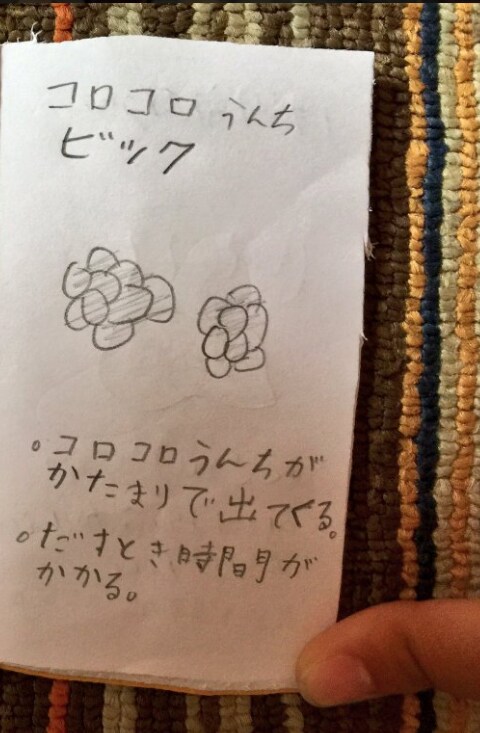 コロコロうんち
ビック
。コロコロうんちが
かたまりで出てくる。
。だすとき時間が
かかる。